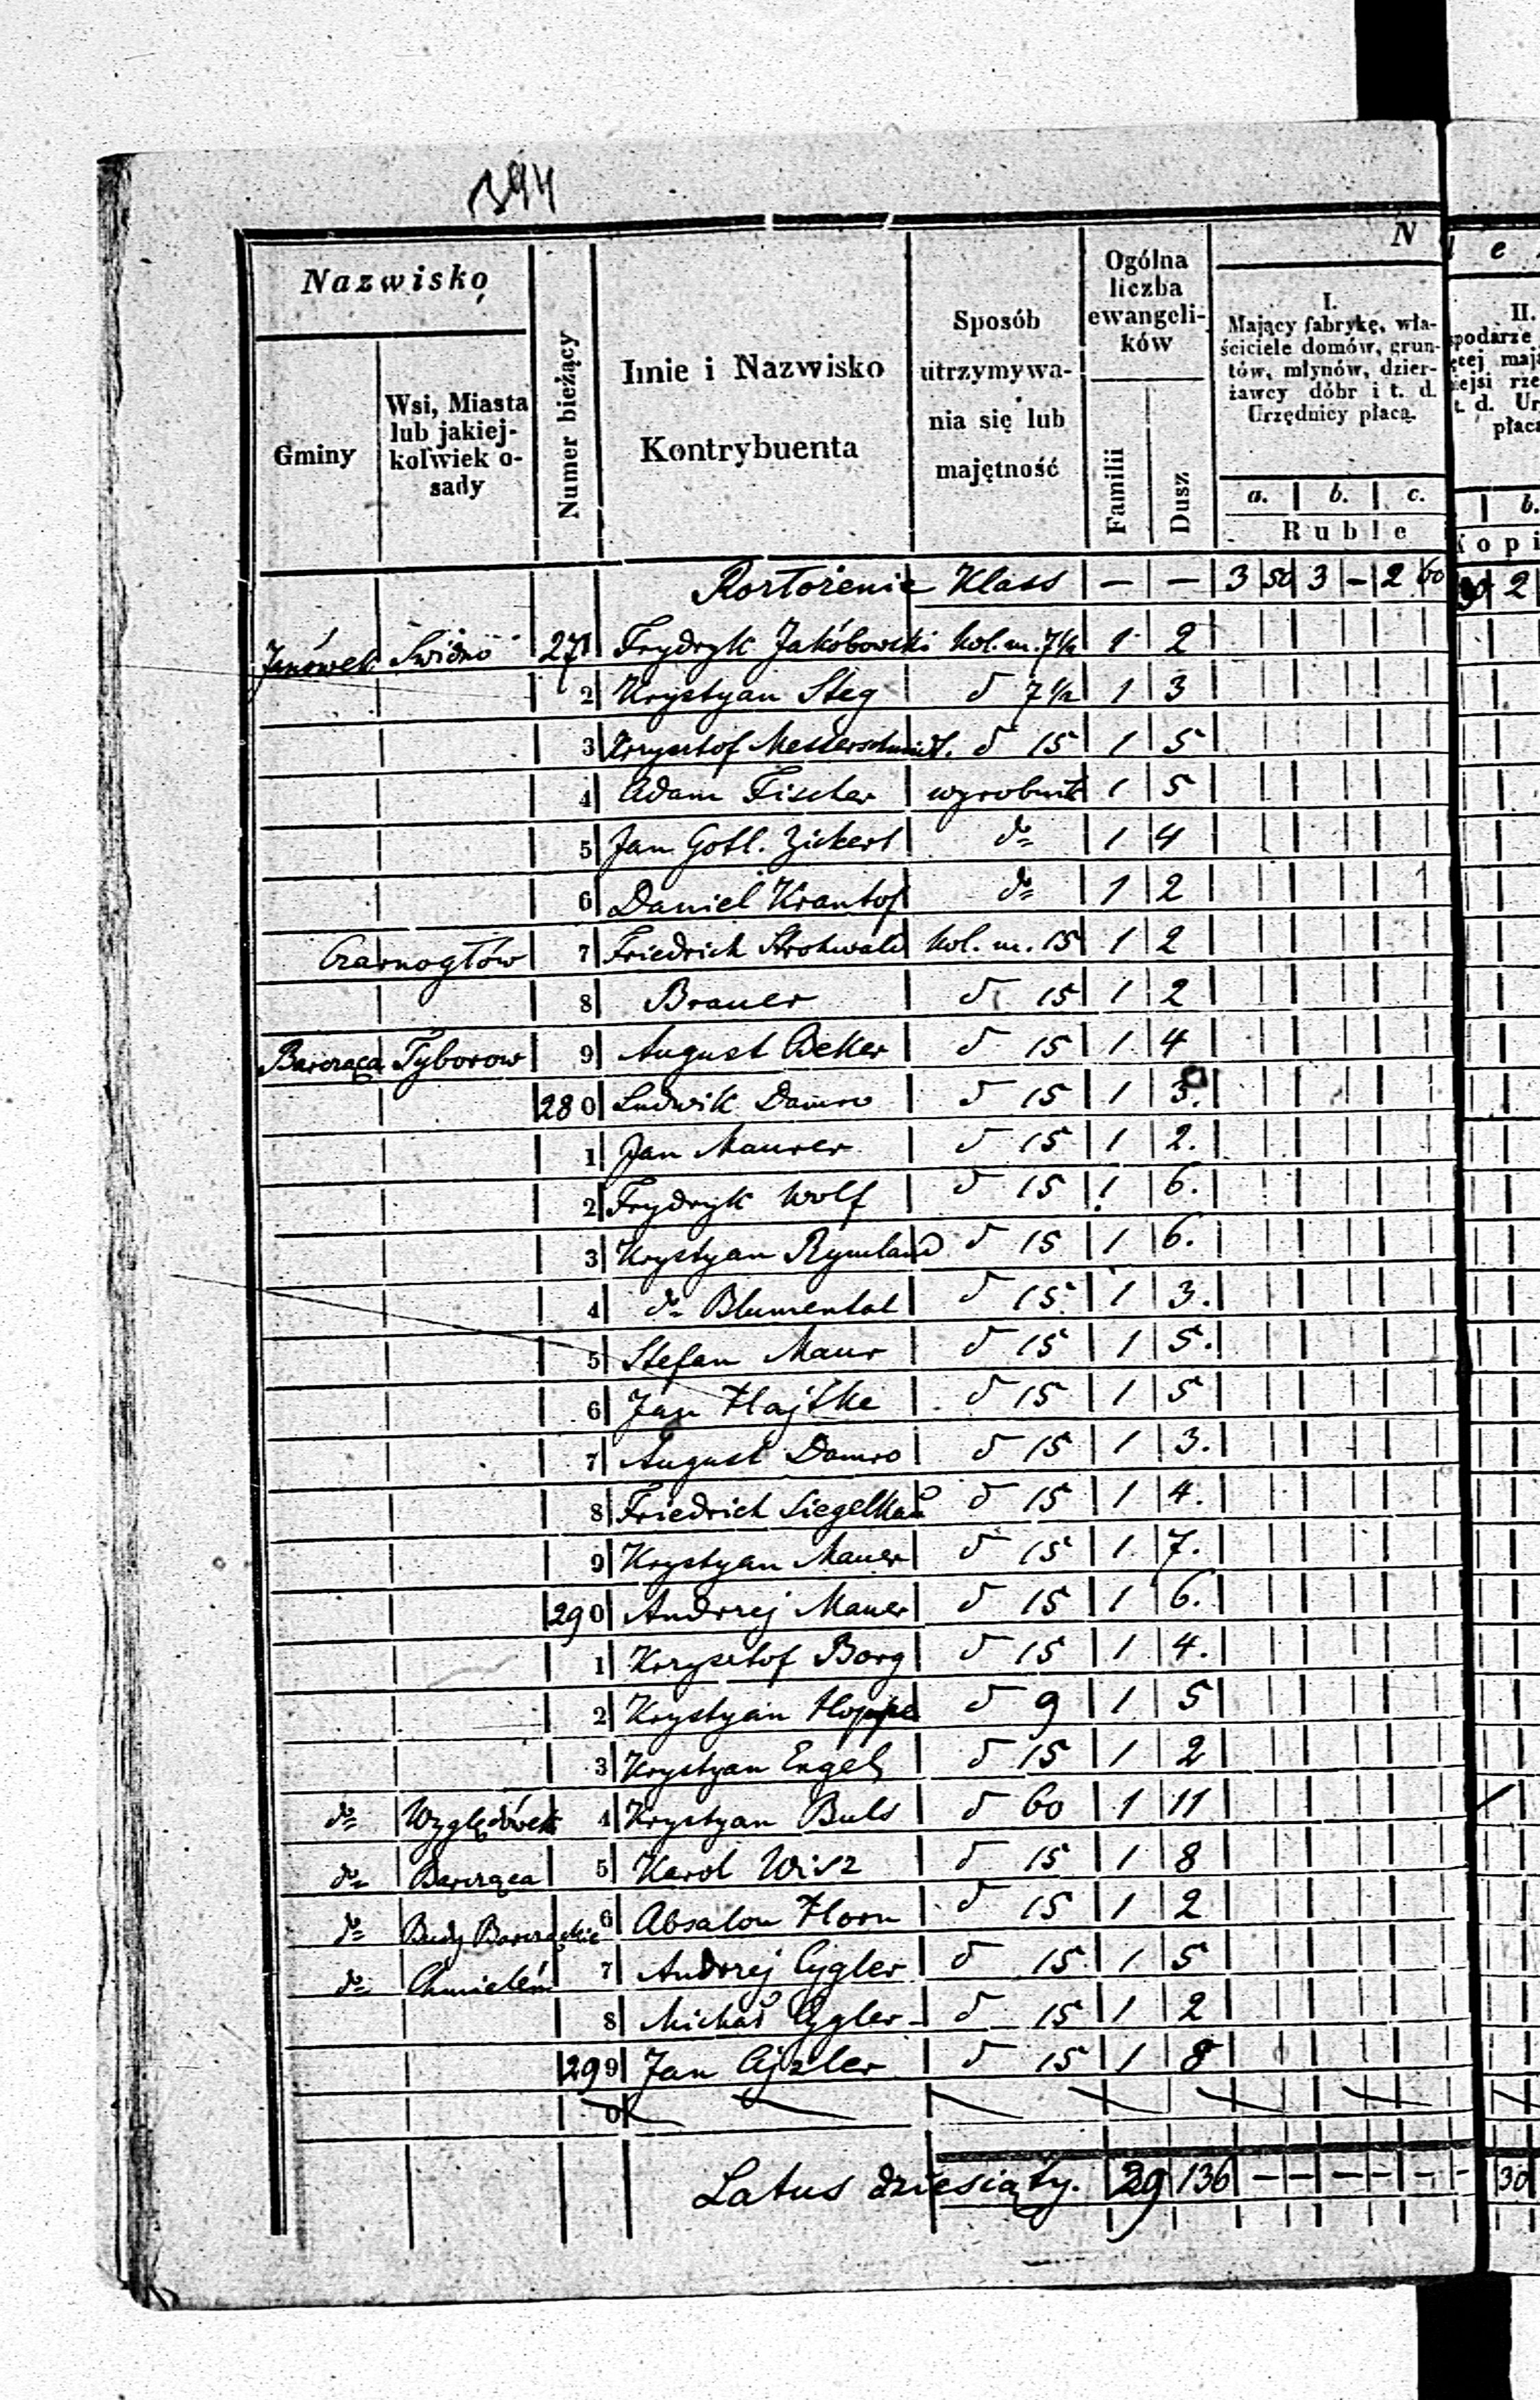 394
Nazwisko
Gminy
Wsi, Miasta lub jakiej-kolwiek o-sady
Numer bieżący
Imie i Nazwisko Kontrybuenta
Sposób utrzymywa-nia się lub majętność
Ogólna liczba ewangeli-ków
Familii
Dusz
N
I.
Mający fabrykę, wła-
ściciele domów, grun-
tów, młynów, dzier-
żawcy dóbr i t. d.
Urzędnicy płacą.
a. b. c.
Ruble
II.
b.
Rozłożenie Klass — — 3 50 3 — 2 60 2
Janówek Swidno 271 Frydryk Jakóbowski kol. m. 7½ 1 2
2 Krystyan Steg d 7½ 1 3
3 Krysztof Messerschmidt. d 15 1 5
4 Adam Fischer wyrobnik 1 5
5 Jan Gotl. Zickert do 1 4
6 Daniel Krantof do 1 2
Czarnogłów 7 Friedrich Strohwald kol. m. 15 1 2
8 Brauer d 15 1 2
Barcząca Tyborow 9 August Beker d 15 1 4
280 Ludwik Damro d 15 1 3.
1 Jan Maurer d 15 1 2.
2 Frydryk Wolf d 15 1 6.
3 Krystyan Rymland d 15 1 6.
4 do Blumental d 15 1 3.
5 Stefan Maur d 15 1 5.
6 Jan Hajtke d 15 1 5
7 August Damro d 15 1 3.
8 Friedrich Siegelkau d 15 1 4.
9 Krystyan Mauer d 15 1 7.
290 Andrzej Mauer d 15 1 6.
1 Krzysztof Borg d 15 1 4.
2 Krystyan Hoppe d 9 1 5
3 Krystyan Engel d 15 1 2
do Względówek 4 Krystyan Buls d 60 1 11
do Barcząca 5 Karol Wisz d 15 1 8
do Budy Barcząckie 6 Absalon Horn d 15 1 2
do Chmielew 7 Andrzej Cygler d 15 1 5
8 Michał Cygler d 15 1 2
299 Jan Cyzler d 15 1 8
0
Latus dziesiąty. 29 136 — — — — — — 30